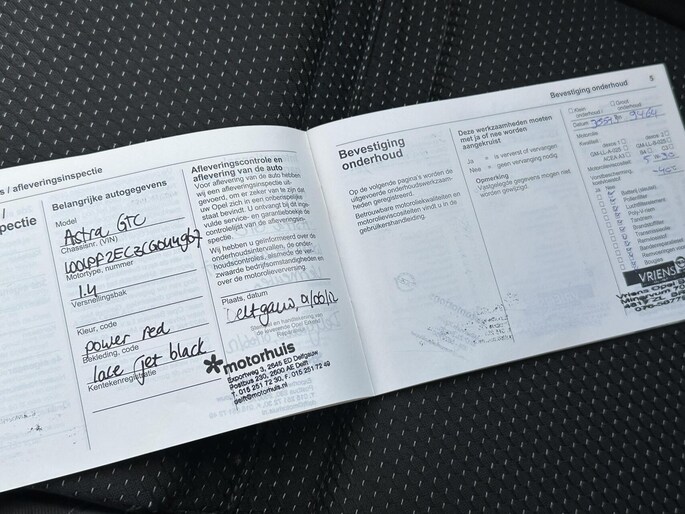 s / afleveringsinspectie
/
pectie
Belangrijke autogegevens
Model
Astra GTC
Chassisnr. (VIN)
Motortype, nummer
1.4
Versnellingsbak
Kleur, code
power red
Bekleding, code
lace jet black
Kentekenregistratie
Afleveringscontrole en
aflevering van de auto
Voor aflevering van de auto hebben
wij een afleveringsinspectie uit-
gevoerd, om er zeker van te zijn dat
uw Opel zich in een onberispelijke
staat bevindt. U ontvangt bij de inge-
vulde service- en garantieboekje de
controlelijst van de afleveringsin-
spectie.
Wij hebben u geïnformeerd over de
onderhoudsintervallen, de onder-
houdscontroles, alsmede de ver-
zwaarde bedrijfsomstandigheden en
over de motorolieverversing.
Plaats, datum
Delfgauw,
Stempel en handtekening van
de leverende Opel Erkend
Reparateur
motorhuis
Exportweg 3, 2645 ED Delfgauw
Postbus 230, 2600 AE Delft
T. 015 251 72 30, F. 015 251 72 49
delft@motorhuis.nl
Bevestiging
onderhoud
Op de volgende pagina's worden de
uitgevoerde onderhoudswerkzaam-
heden geregistreerd.
Betrouwbare motoroliekwaliteiten en
motorolieviscositeiten vindt u in de
gebruikershandleiding.
Deze werkzaamheden moeten
met ja of nee worden
aangekruist
Ja = is ververst of vervangen
Nee = geen vervanging nodig
Opmerking
Vastgelegde gegevens mogen niet
worden gewijzigd.
Bevestiging onderhoud
5
Klein
onderhoud
Groot
onderhoud
Datum
km
Motorolie
Kwaliteit
dexos 1
dexos 2
GM-LL-A-025
GM-LL-B-025
ACEA A3
B4
C3
Ja
Nee
Pollenfilter
Poly V-riem
Tandriem
Brandstoffilter
VRIENS
Vriens Opel